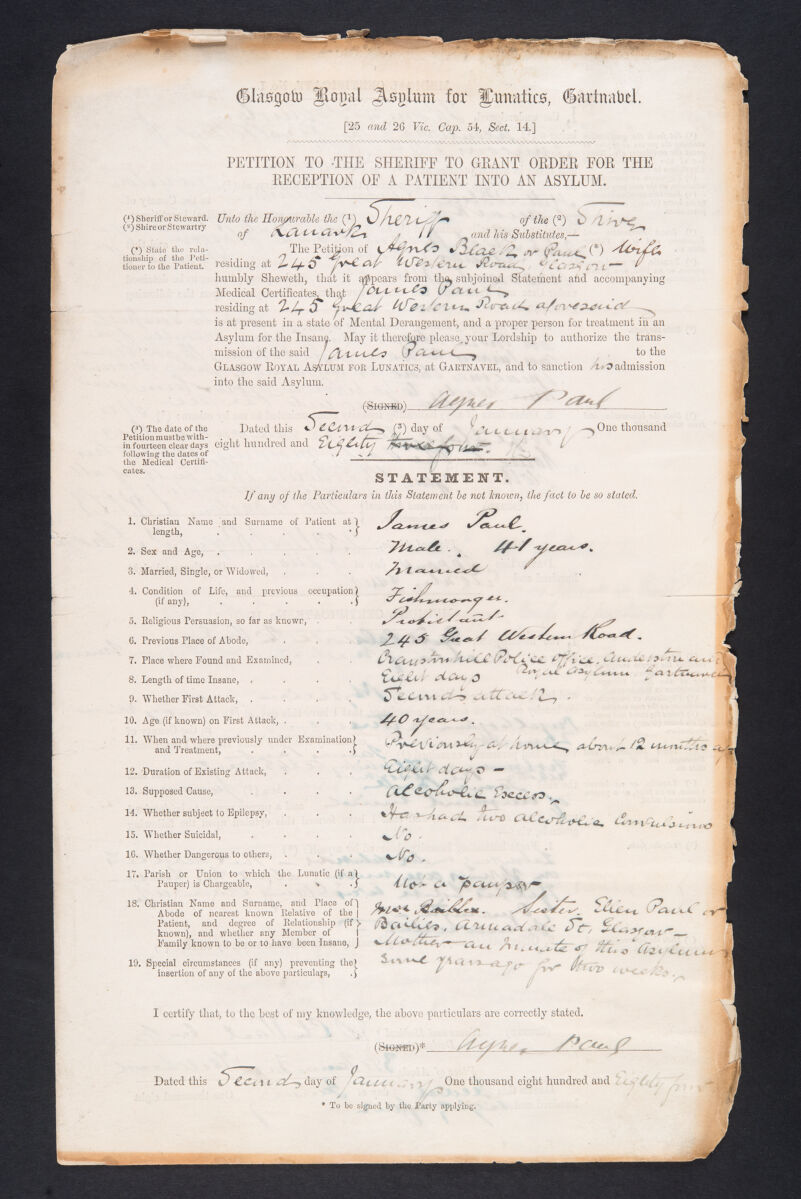 Glasgow Royal Asylum for Lunatics, Gartnavel.
[25 and 26 Vic. Cap. 54, Sect. 14.]
PETITION TO THE SHERIFF TO GRANT ORDER FOR THE
RECEPTION OF A PATIENT INTO AN ASYLUM.
(1) Sheriff or Steward.
(2) Shire or Stewartry
Unto the Honourable the (1) Sheriff of the (2) Shire
of Lanark and his Substitutes,—
(*) State the rela-
tionship of the Peti-
tioner to the Patient.
The Petition of Agnes Black or Paul (*) Wife
residing at 245 Great Western Road, Glasgow
humbly Sheweth, that it appears from the subjoined Statement and accompanying
Medical Certificates, that James Paul
residing at 245 Great Western Road aforesaid
is at present in a state of Mental Derangement, and a proper person for treatment in an
Asylum for the Insane. May it therefore please your Lordship to authorize the trans-
mission of the said James Paul to the
GLASGOW ROYAL ASYLUM FOR LUNATICS, at GARTNAVEL, and to sanction his admission
into the said Asylum.
(SIGNED) Agnes Paul
(3) The date of the
Petition must be with-
in fourteen clear days
following the dates of
the Medical Certifi-
cates.
Dated this Second (3) day of January One thousand
eight hundred and Eighty four.
STATEMENT.
If any of the Particulars in this Statement be not known, the fact to be so stated.
1. Christian Name and Surname of Patient at length, James Paul.
2. Sex and Age, Male. 41 years.
3. Married, Single, or Widowed, Married
4. Condition of Life, and previous occupation (if any), Fishmonger.
5. Religious Persuasion, so far as known, Protestant
6. Previous Place of Abode, 245 Great Western Road.
7. Place where Found and Examined, Cranstonhill Police Office, Anderston and
Royal Asylum, Gartnavel
8. Length of time Insane, Eight days
9. Whether First Attack, Second attack.
10. Age (if known) on First Attack, 40 years.
11. When and where previously under Examination and Treatment, Previously at home about 12 months
12. Duration of Existing Attack, Eight days –
13. Supposed Cause, Alcoholic Excess.
14. Whether subject to Epilepsy, Has had two alcoholic Convulsions
15. Whether Suicidal, No.
16. Whether Dangerous to others, No.
17. Parish or Union to which the Lunatic (if a Pauper) is Chargeable, Not a pauper
18. Christian Name and Surname, and Place of
Abode of nearest known Relative of the
Patient, and degree of Relationship (if
known), and whether any Member of
Family known to be or to have been Insane,
Sister, Ellen Paul or
Baillies, Armadale St, Glasgow –
Mother an Inmate of this Asylum
some years ago for two weeks.
19. Special circumstances (if any) preventing the
insertion of any of the above particulars,
I certify that, to the best of my knowledge, the above particulars are correctly stated.
(SIGNED)* Agnes Paul
Dated this Second day of January One thousand eight hundred and Eighty four
* To be signed by the Party applying.